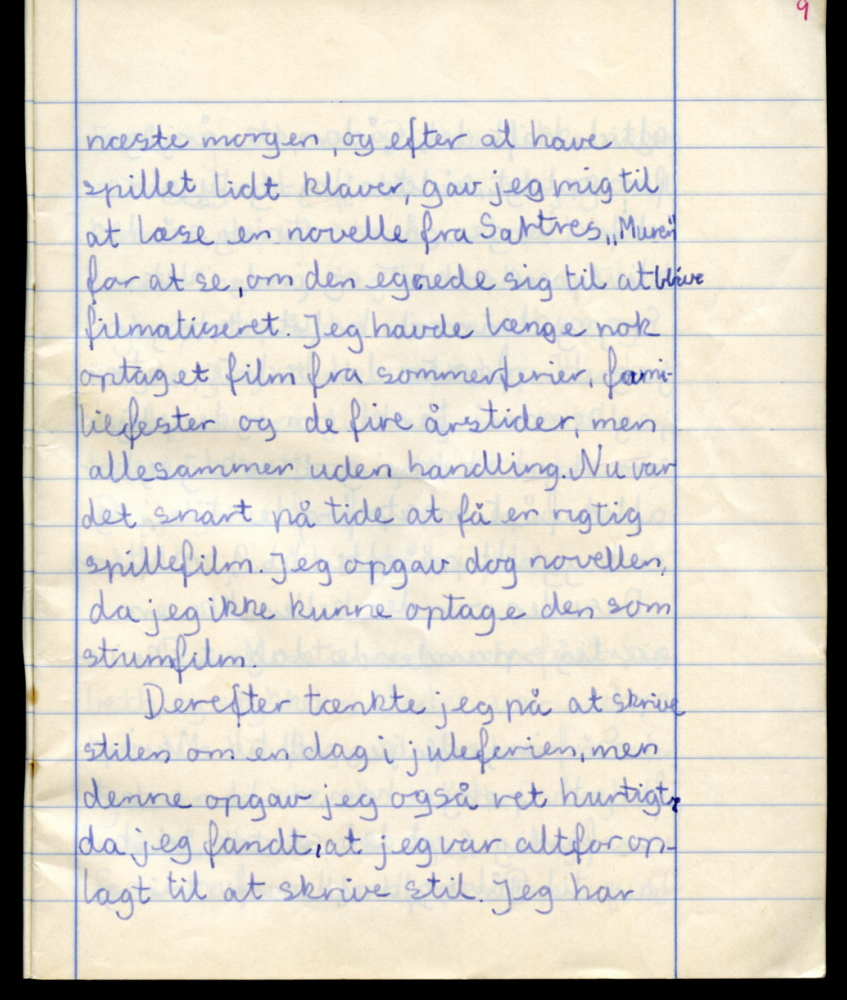 9
næste morgen, og efter at have
spillet lidt klaver, gav jeg mig til
at læse en novelle fra Sartres „Muren"
for at se, om den egnede sig til at blive
filmatiseret. Jeg havde længe nok
optaget film fra sommerferier, fami-
liefester og de fire årstider, men
allesammen uden handling. Nu var
det snart på tide at få en rigtig
spillefilm. Jeg opgav dog novellen,
da jeg ikke kunne optage den som
stumfilm.
Derefter tænkte jeg på at skrive
stilen om en dag i juleferien, men
denne opgav jeg også ret hurtigt,
da jeg fandt, at jeg var altfor op-
lagt til at skrive stil. Jeg har